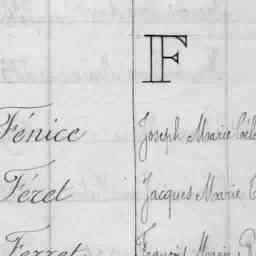 F
Fénice Joseph Marie
Féret Jacques Marie
Ferret François Marie